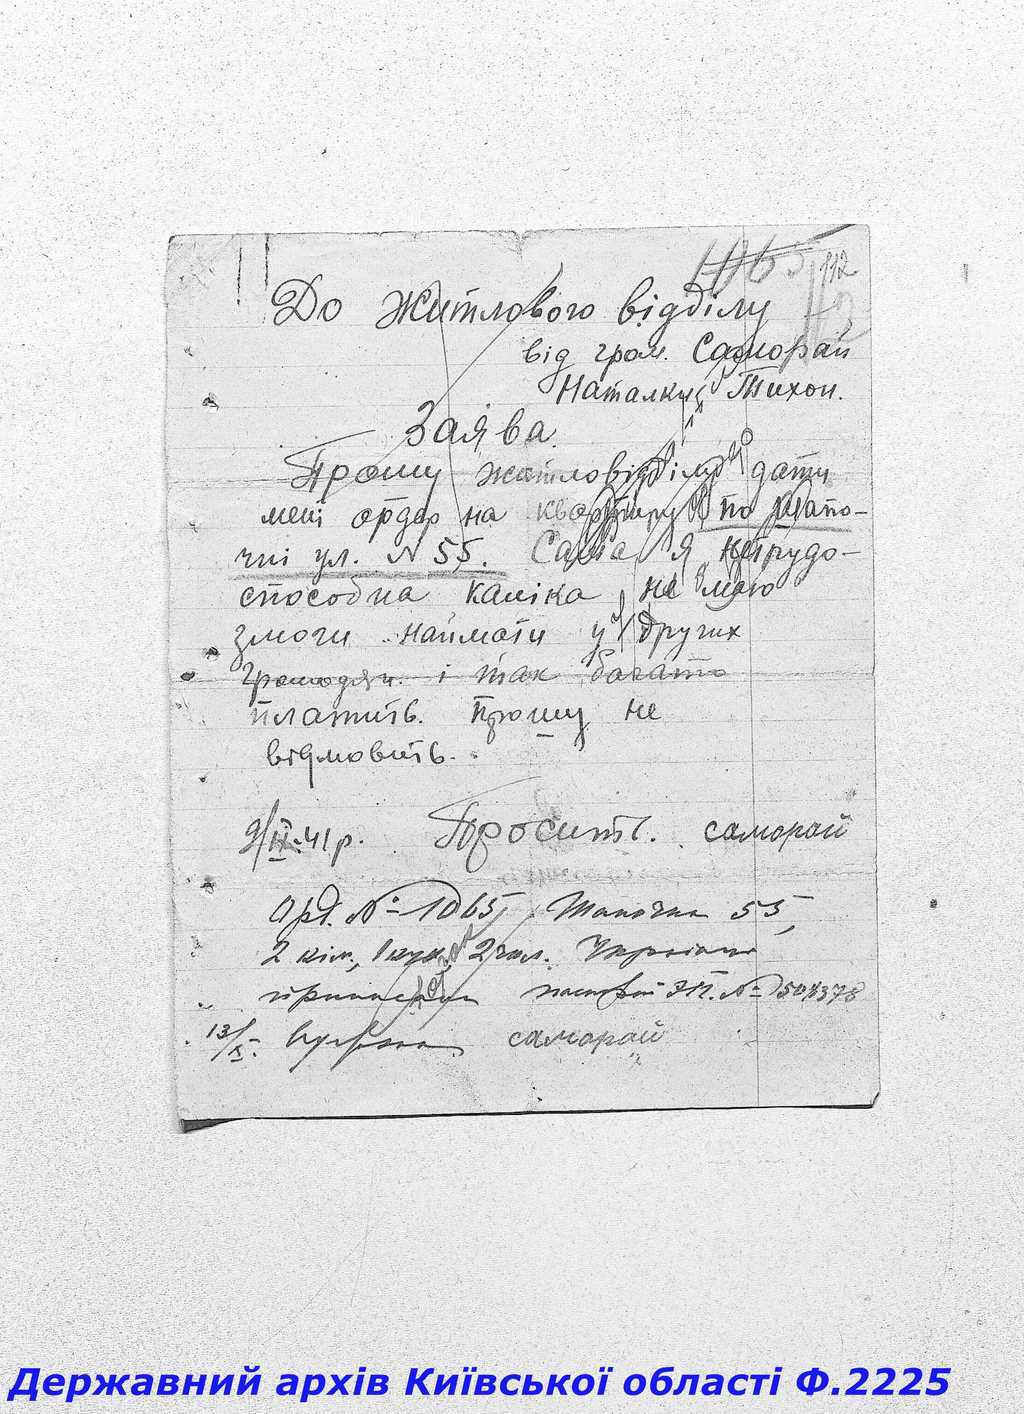 1065
112
До Житлового відділу
від гром. Саморай
Наталки Тихон.
Заява.
Прошу житловідділу дати
мені ордер на квартиру по Шапо-
чні ул. N 55. Сама я нетрудо-
способна каліка не маю
змоги наймати у других
громодян. і так багато
платить. Прошу не
відмовить.
9/ІІ-41 р. Просить. саморай
Орд. № 1065 55,
2 кім., 1 кух. 2 чол.
паспорт №
13/X. саморай
Державний архів Київської області Ф.2225